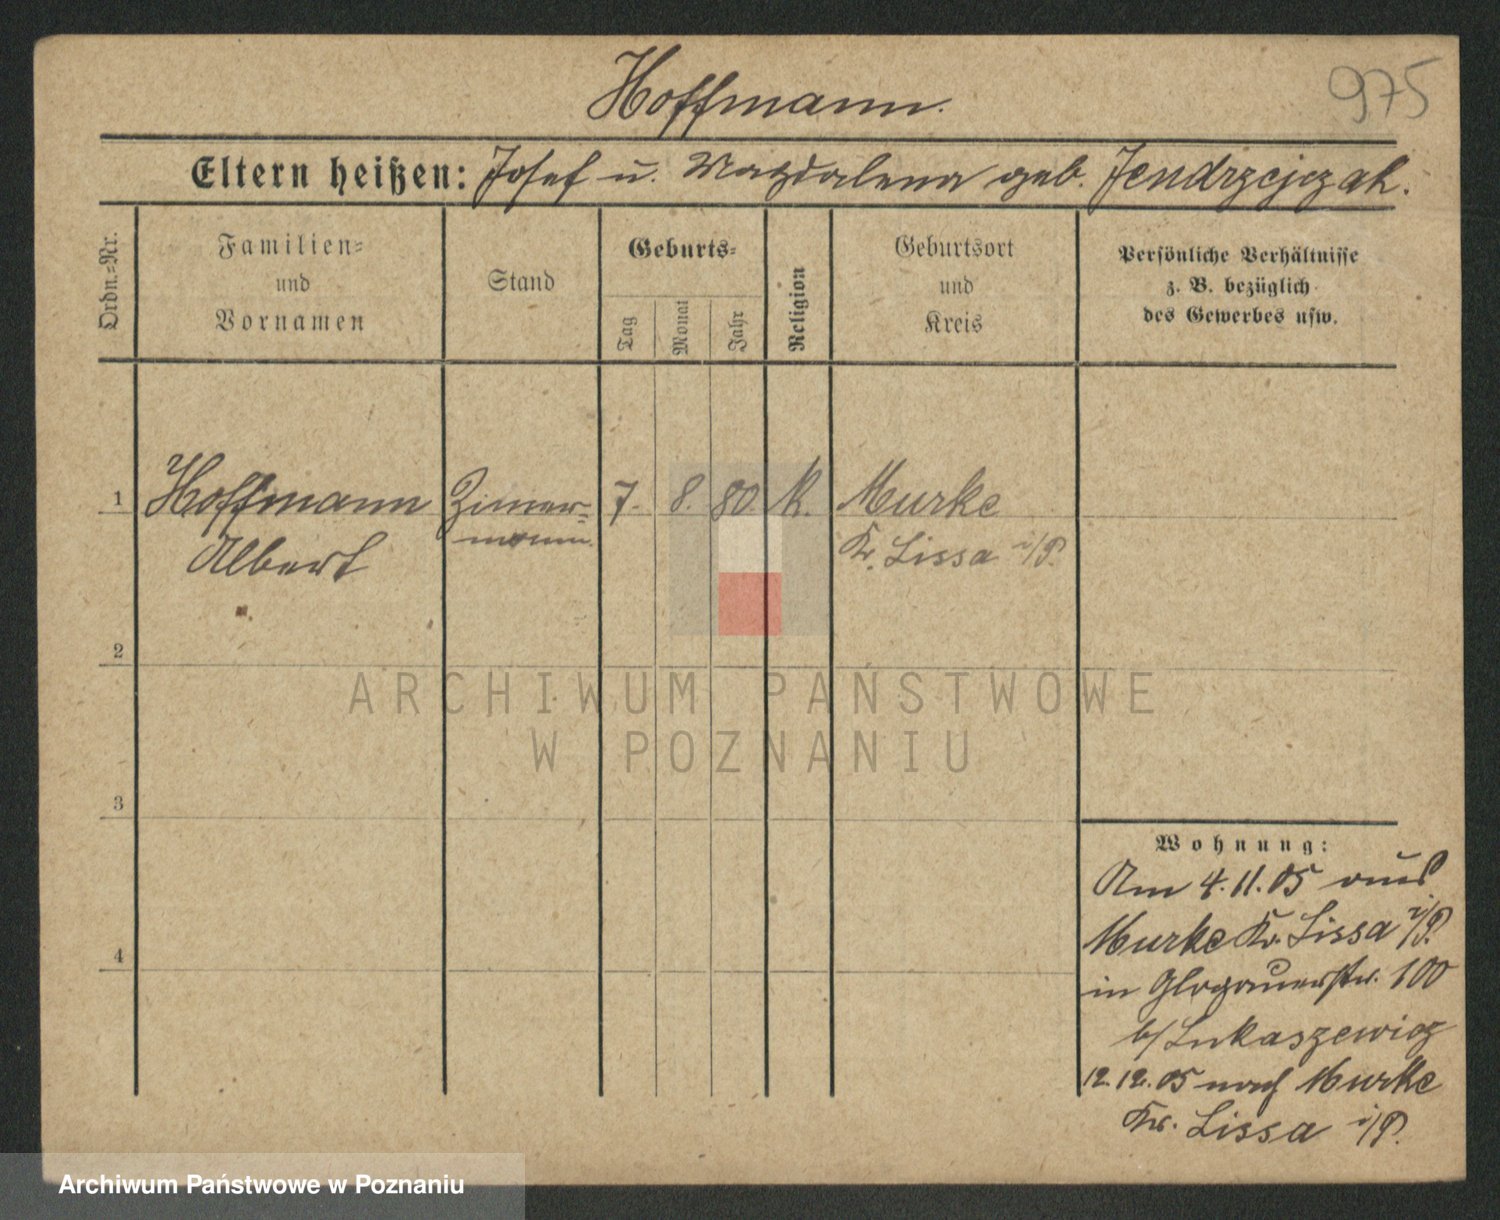 Hoffmann.
975
Eltern heißen: Josef u. Magdalena geb. Jendrzejczak.
Ordn.-Nr.
Familien-
und
Vornamen
Stand
Geburts-
Tag
Monat
Jahr
Religion
Geburtsort
und
Kreis
Persönliche Verhältnisse
z. B. bezüglich
des Gewerbes usw.
1 Hoffmann Zimer- 7. 8. 80. k. Murke
Albert mann. Kr. Lissa i/P.
2
ARCHIWUM PAŃSTWOWE
W POZNANIU
3
Wohnung:
Am 4.11.05 aus
Murke Kr. Lissa i/P.
4
in Glogauerstr. 100
b/ Lukaszewicz
12.12.05 nach Murke
Kr. Lissa i/P.
Archiwum Państwowe w Poznaniu